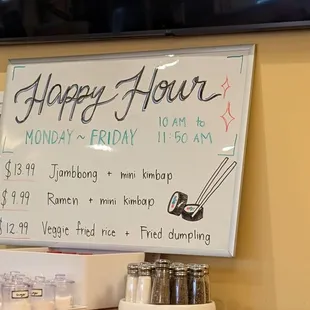 Happy Hour
MONDAY ~ FRIDAY
10 AM to
11:50 AM
$13.99 Jjambbong + mini kimbap
$9.99 Ramen + mini kimbap
$12.99 Veggie fried rice + Fried dumpling